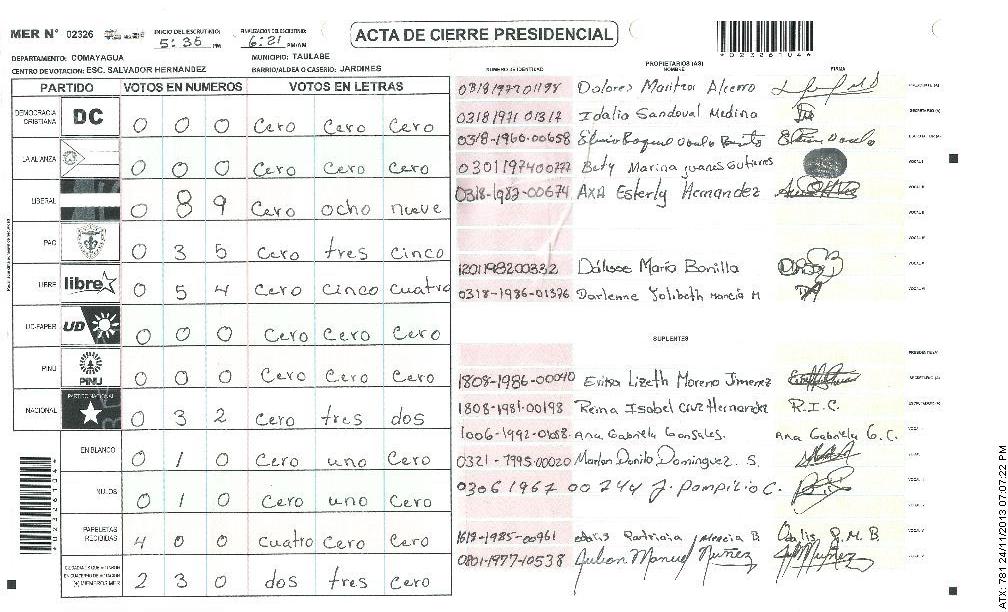 MER N° 02326
INICIO DEL ESCRUTINIO:
5:35 PM
FINALIZACION DEL ESCRUTINIO:
6:21 PM/AM
ACTA DE CIERRE PRESIDENCIAL
DEPARTAMENTO: COMAYAGUA
MUNICIPIO: TAULABE
CENTRO DE VOTACION: ESC. SALVADOR HERNANDEZ
BARRIO/ALDEA O CASERIO: JARDINES
PARTIDO VOTOS EN NUMEROS VOTOS EN LETRAS
DEMOCRACIA CRISTIANA DC 0 0 0 Cero Cero Cero
LA ALIANZA 0 0 0 Cero Cero Cero
LIBERAL 0 8 9 Cero ocho nueve
PAC 0 3 5 Cero tres cinco
LIBRE libre 0 5 4 Cero cinco cuatro
UD-FAPER UD 0 0 0 Cero Cero Cero
PINU PINU 0 0 0 Cero Cero Cero
NACIONAL PARTIDO NACIONAL 0 3 2 Cero tres dos
EN BLANCO 0 1 0 Cero uno Cero
NULOS 0 1 0 Cero uno Cero
PAPELETAS RECIBIDAS 4 0 0 cuatro Cero Cero
2 3 0 dos tres Cero
PROPIETARIOS (AS)
NUMERO IDENTIDAD NOMBRE FIRMA
Dolores Maritza
0318 1971 01317 Idalia Sandoval Medina
0318-1960-00658
0301197400777 Bety Marina Juanes Gutierres
0318-1982-00674 AXA Esterly Hernandez
1201198200332 María Bonilla
0318-1986-01376 Darlenne
SUPLENTES
1808-1986-00040 Lizeth Moreno Jimenez
1808-1981-00198 Reina Isabel Cruz Hernandez R.I.C.
Ana Gabriela Gonsales. Ana Gabriela G. C.
Marlon Danilo Dominguez. S.
0306 1967 00244 J. Pompilio C.
1618-1985-00961
0801-1977-10538 Julian Manuel Nuñez
ATX: 781 24/11/2013 07:07:22 PM